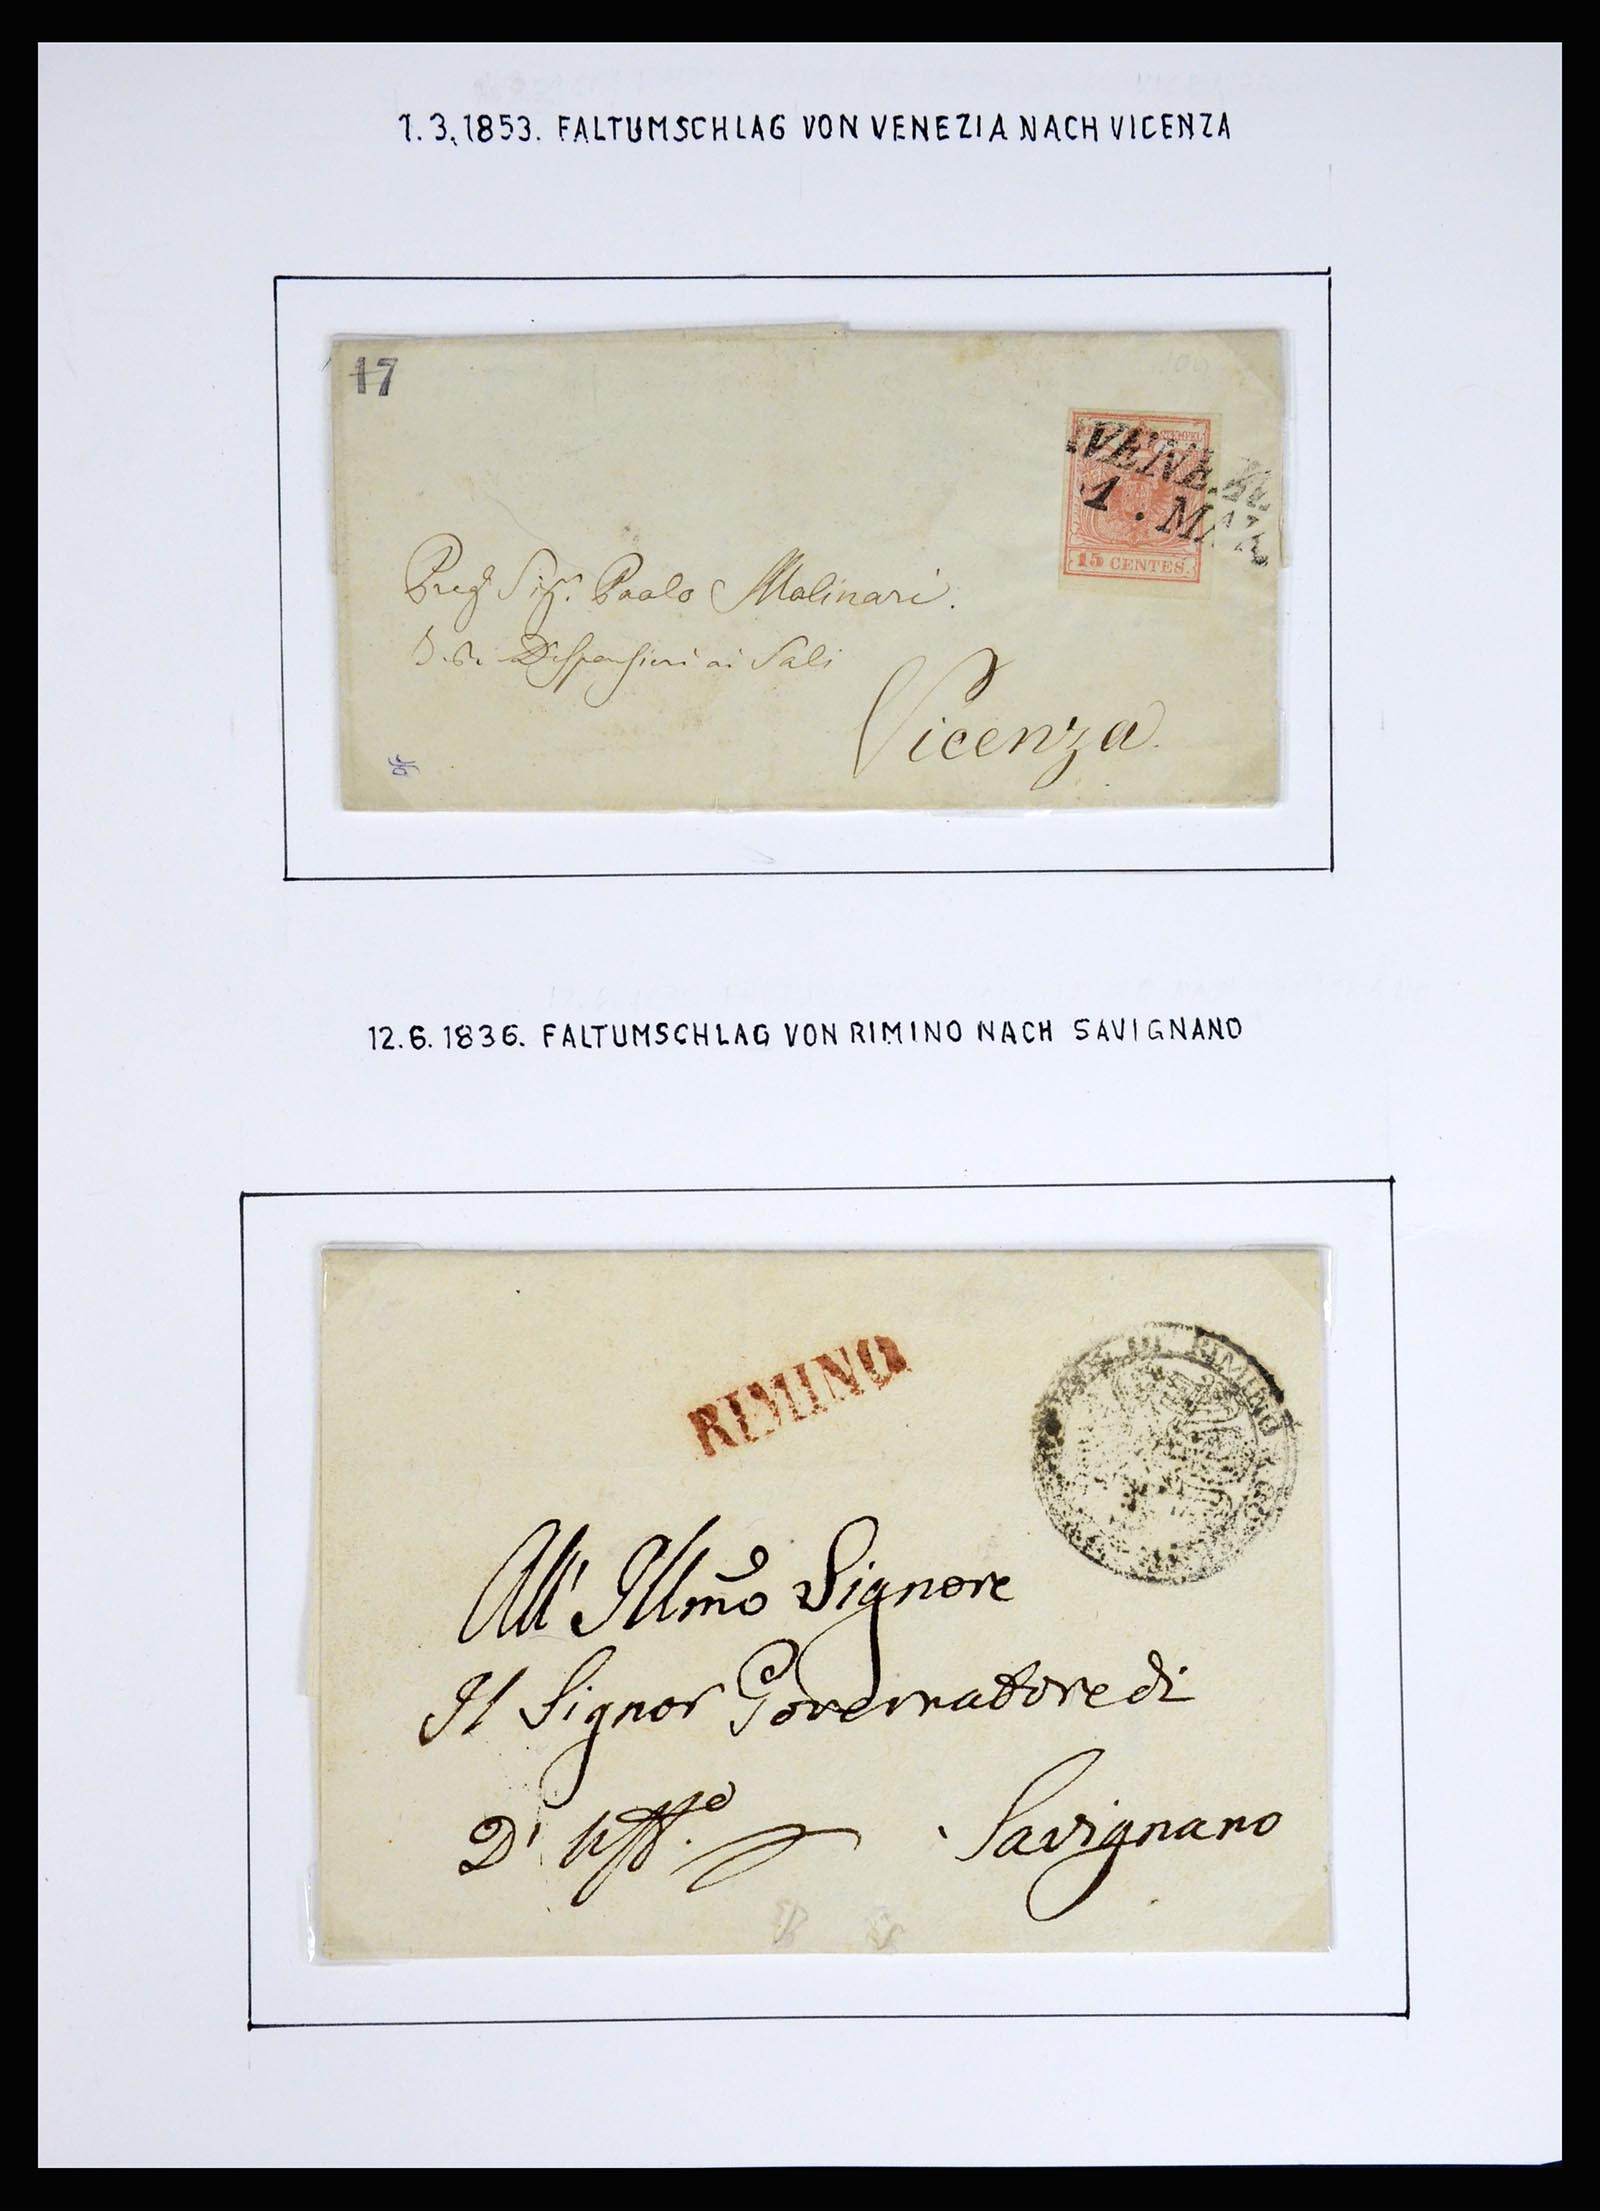 1.3.1853. FALTUMSCHLAG VON VENEZIA NACH VICENZA
17
STEMPEL
VENE
1. MAR
15 CENTES.
Preg Sigr. Paolo Molinari.
Dispensieri ai Sali
Vicenza.
12.6.1836. FALTUMSCHLAG VON RIMINO NACH SAVIGNANO
RIMINO
DI RIMINO
All' Illmo Signore
Il Signor Governatore di
D' Uffo. Savignano